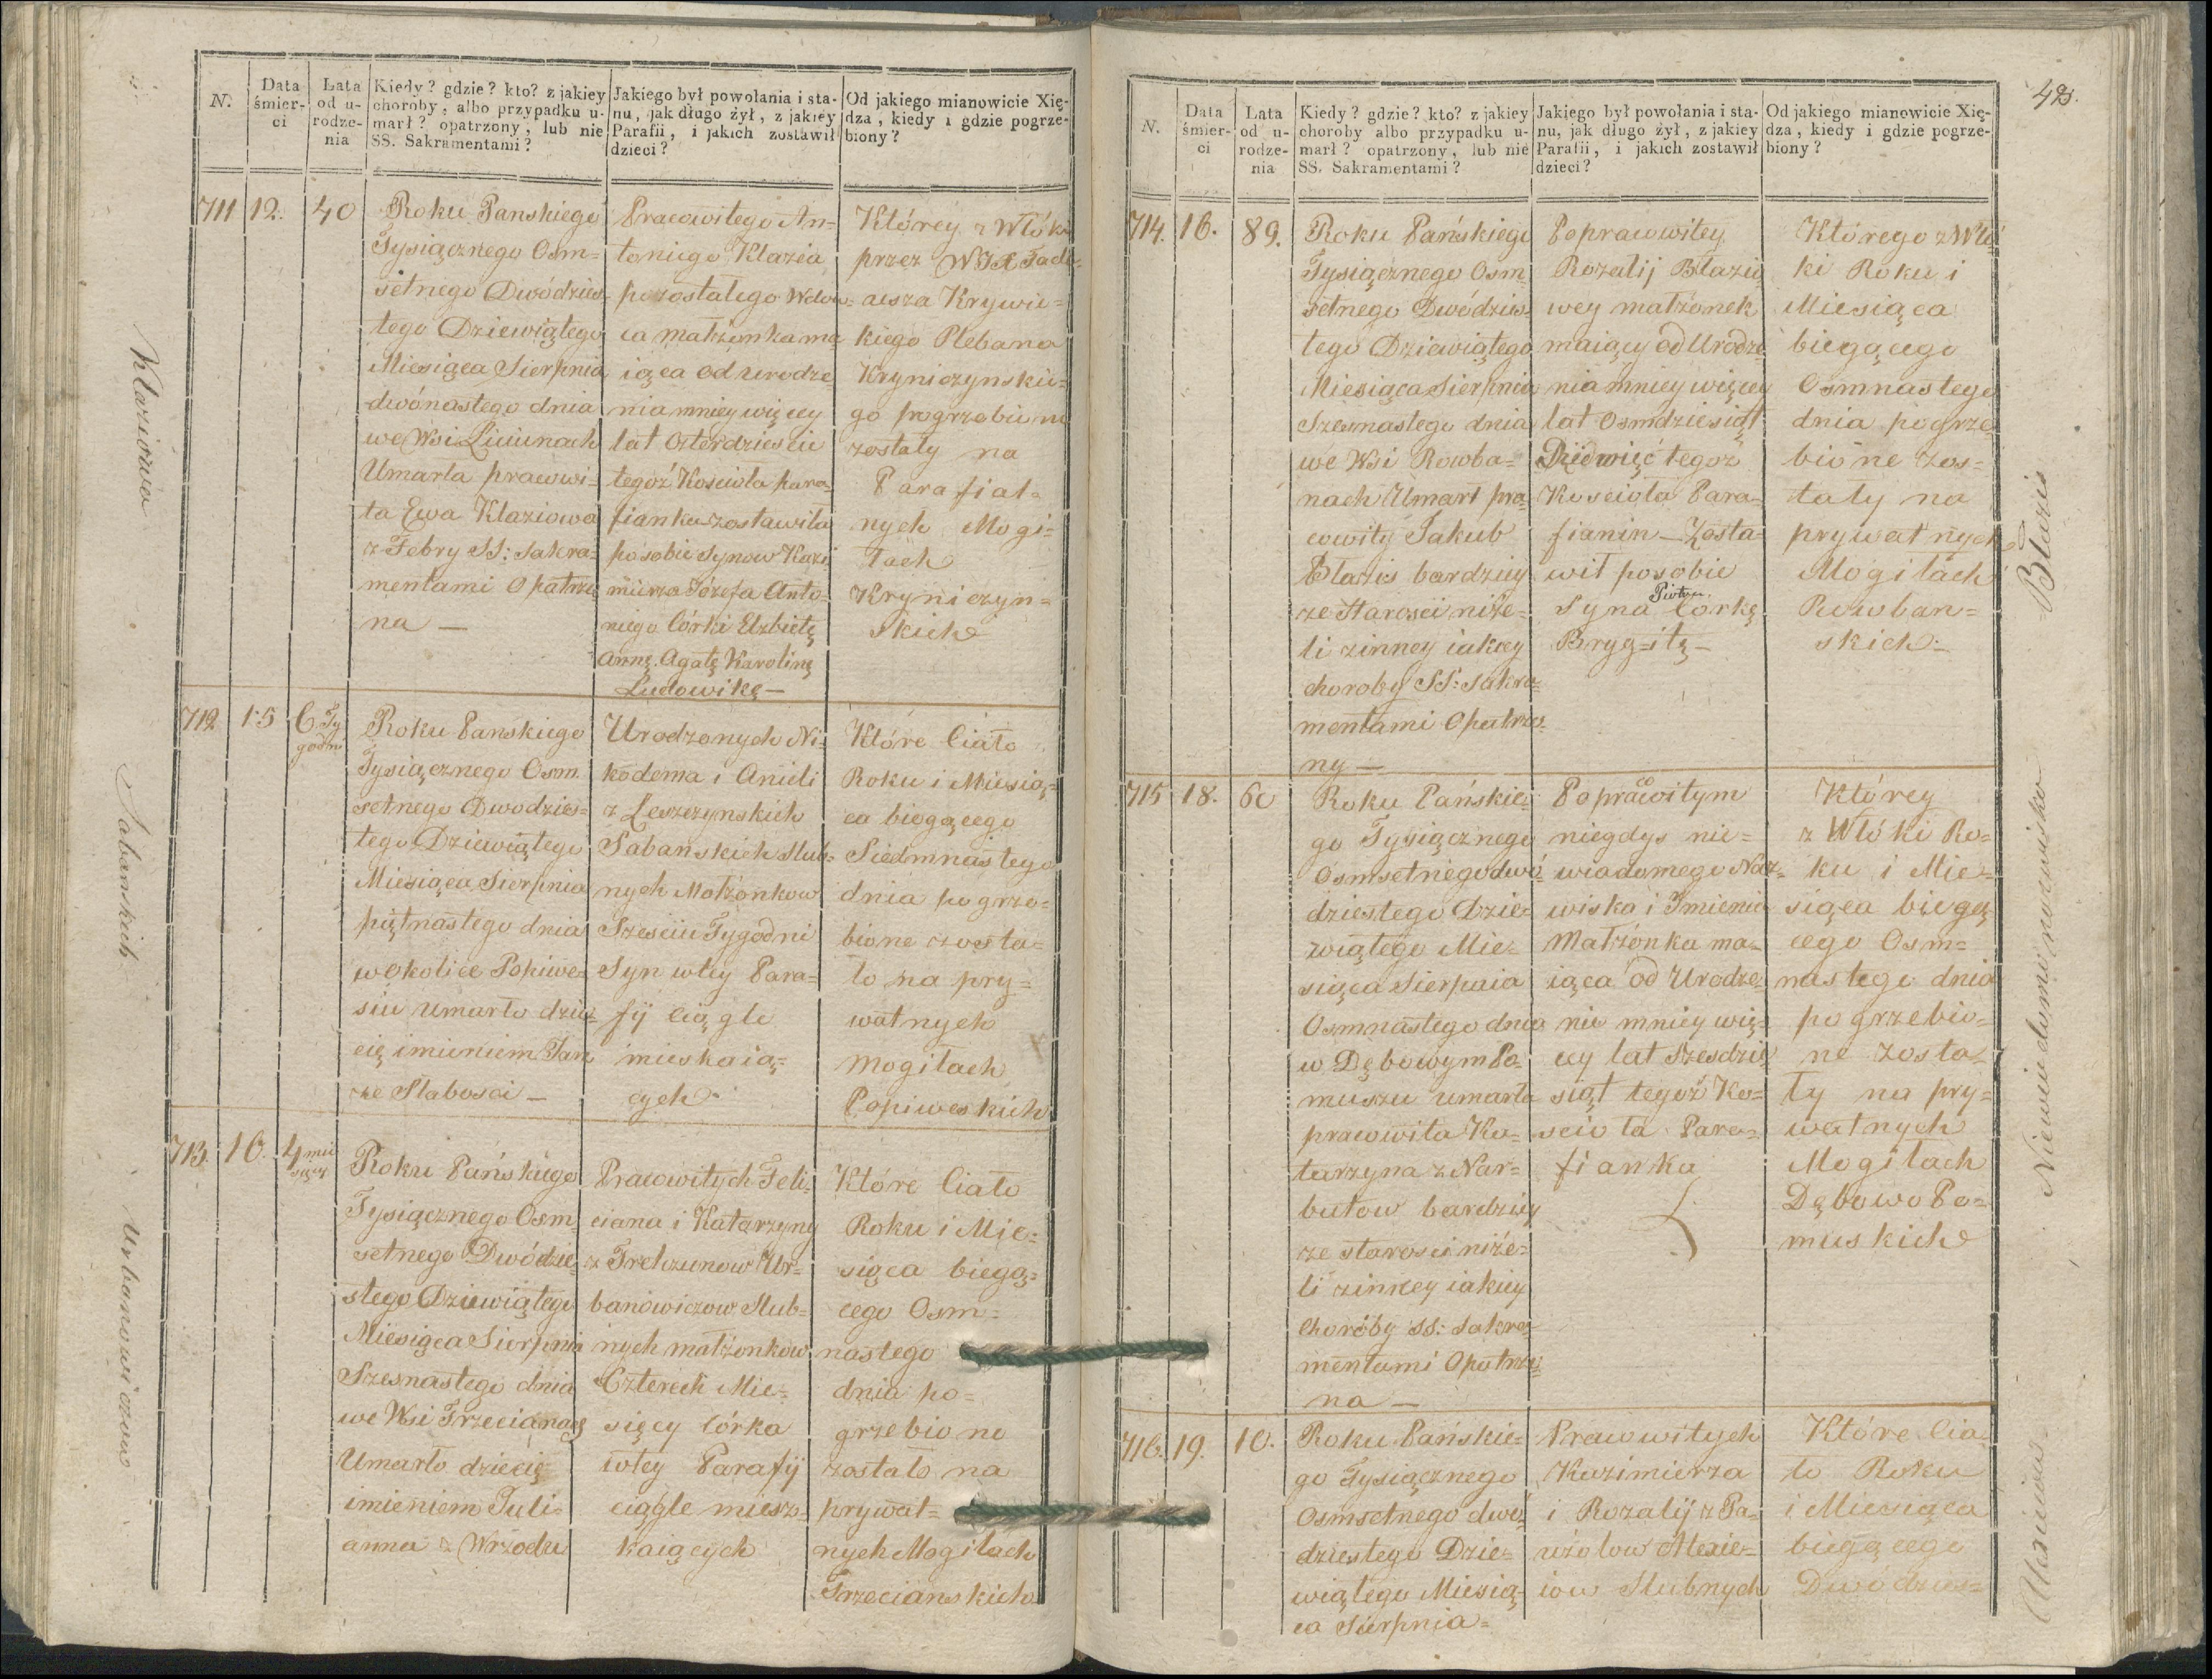 N.
Data
śmier-
ci
Lata
od u-
rodze-
nia
Kiedy? gdzie? kto? z jakiey
choroby, albo przypadku u-
marł? opatrzony, lub nie
SS. Sakramentami?
Jakiego był powołania i sta-
nu, jak długo żył, z jakiey
Parafii, i jakich zostawił
dzieci?
Od jakiego mianowicie Xię-
dza, kiedy i gdzie pogrze-
biony?
711
12.
40
Roku Panskiego
Tysiącznego Osm=
setnego Dwódzies=
tego Dziewiątego
Miesiąca Sierpnia
dwónastego dnia
we Wsi Liciunach
Umarła pracowi=
ta Ewa Klaziowa
z Febry SS: Sakra=
mentami Opatrzo
na —
Pracowitego An=
toniego Klazia
pozostałego Wdow=
ca małżonka ma
iąca od urodze
nia mniey więcey
lat czterdziescie
tegoż Kosciola para=
fianka zostawiła
po sobie Synow Kazi
mierza Józefa Anto=
niego Córki Elzbietę
Annę. Agatę Karolinę
Ludowikę —
Którey z Wlóki
przez WJX Tade=
usza Krywic=
kiego Plebana
Kryniczynskie=
go pogrzebione
zostały na
Parafial=
nych Mogi=
łach
Kryniczyn=
skich
Klaziowa
712
15
6 Ty
godni
Roku Panskiego
Tysiącznego Osm
setnego Dwodzies=
tego Dziewiątego
Miesiąca Sierpnia
piętnastego dnia
w okolice Popiwe=
siu umarło dzie=
cię imieniem Jan
ze Słabosci —
Urodzonych Ni=
kodema i Anieli
z Leszczynskich
Sabanskich slub=
nych Małżonkow
Szesciu Tygodni
Syn w tey Para=
fij ciągle
mieskaią=
cych.
Które Ciało
Roku i Miesią=
ca biegącego
Siedmnastego
dnia pogrze=
bione zosta=
ło na pry=
watnych
Mogiłach
Popiweskich
Sabanskich
713.
16.
4 mie
sięcy
Roku Pańskiego
Tysiącznego Osm
setnego Dwódzie=
stego Dziewiątego
Miesiąca Sierpnia
Szesnastego dnia
we Wsi Trzecianach
Umarło dziecię
imieniem Juli=
anna z Wrzodu
Pracowitych Feli=
ciana i Katarzyny
z Trelczunow Ur=
banowiczow Slub=
nych małżonkow
Czterech Mie=
sięcy Córka
w tey Parafij
ciągle miesz=
kaiących
Które Ciało
Roku i Mie=
siąca biegą=
cego Osm=
nastego
dnia po=
grzebione
zostało na
prywat=
nych Mogiłach
Trzecianskich
Urbanowiczow
48.
N.
Data
śmier-
ci
Lata
od u-
rodze-
nia
Kiedy? gdzie? kto? z jakiey
choroby albo przypadku u-
marł? opatrzony, lub nie
SS. Sakramentami?
Jakiego był powołania i sta-
nu, jak długo żył, z jakiey
Parafii, i jakich zostawił
dzieci?
Od jakiego mianowicie Xię-
dza, kiedy i gdzie pogrze-
biony?
714.
16.
89.
Roku Pańskiego
Tysiącznego Osm
setnego Dwódzies=
tego Dziewiątego
Miesiąca Sierpnia
Szesnastego dnia
we Wsi Rowba=
nach Umarł pra
cowity Jakub
Błazis bardziey
ze Starosci niże=
li zinney iakiey
choroby SS: Sakra=
mentami Opatrzo=
ny —
Po pracowitey
Rozalij Błazie
wey małżonek
maiący od Urodze
nia mniey więcey
lat Osmdziesiąt
Dziewięć tegoż
Kosciola Para=
fianin — Zosta=
wił po sobie
Syna Piotra Córkę
Brygitę —
Którego z Wló
ki Roku i
Miesiąca
biegącego
Osmnastego
dnia pogrze=
bione zos=
tały na
prywatnych
Mogiłach
Rowban=
skich —
Błazis
715
18.
60
Roku Pańskie=
go Tysiącznego
Osmsetnego dwó=
dziestego Dzie=
wiątego Mie=
siąca Sierpnia
Osmnastego dnia
w Dębowym Po=
muszu umarła
pracowita Ka=
tarzyna z Nar=
butow bardziey
ze starosci niże=
li zinney iakiey
choróby SS: Sakra=
mentami Opatrzo
na —
Po pracowitym
niegdys nie=
wiadomego Naz=
wiska i Imienia
Małżonka ma=
iąca od Urodze=
nie mniey wię=
cy lat Szesdzie
siąt tegoż Ko=
sciola Para=
fianka
Którey
z Wlóki Ro=
ku i Mie=
siąca biegą
cego Osm=
nastego dnia
pogrzebio=
ne zosta=
ły na pry=
watnych
Mogiłach
Dębowo Po=
muskich
Niewiedomo nazwisko
716.
19.
10.
Roku Pańskie=
go Tysiącznego
Osmsetnego dwó=
dziestego Dzie=
wiątego Miesią=
ca Sierpnia=
Pracowitych
Kazimierza
i Rozalij z Pa=
iow Slubnych
Które Cia
ło Roku
i Miesiąca
biegącego
Dwódzies=